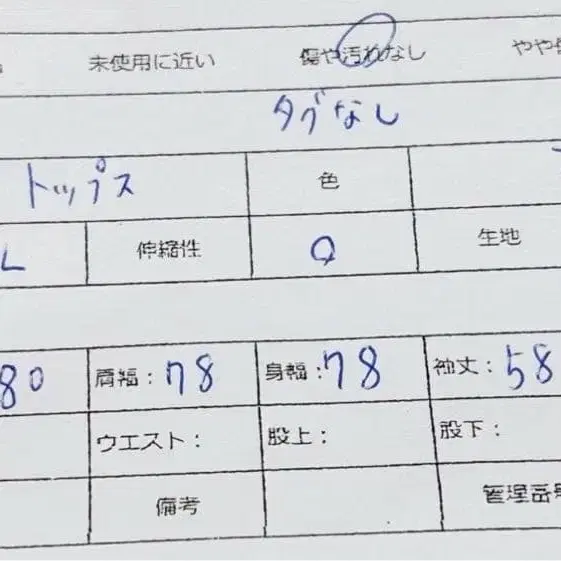 未使用に近い 傷や汚れなし やや
タグなし
トップス 色
L 伸縮性 ○ 生地
80 肩幅:78 身幅:78 袖丈:58
ウエスト: 股上: 股下:
備考 管理番号